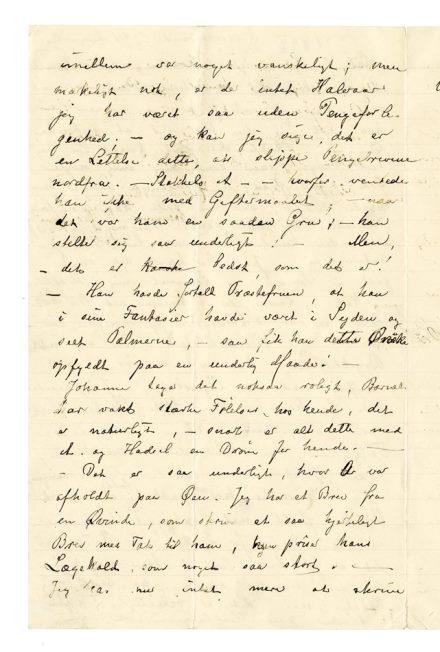 imellem var noget vanskeligt; men
mærkeligt nok, er de intet Halvaar
jeg har været saa uden Pengeforle-
genhed. — og kan jeg sige, det er
en Lettelse dette, at slippe Pengebrevene
nordfra. — Stakkels — hvorfor ventede
han ikke med Giftermaalet, — naa
det var ham en saadan Gru; — han
stelte sig saa underligt! — Men,
— det er kanske bedst, som det er!
— Han havde fortalt Præstefruen, at han
i sine Fantasier havde været i Syden og
seet Palmerne, — saa fik han dette Ønske
opfyldt paa en underlig Maade! —
Johanne tage det nokså roligt, Barnet
har vakt stærke Følelser hos hende, det
er naturligt, — snart er alt dette med
og Hadsel en Drøm for hende. —
— Det er saa underligt, hvor var
afholdt paa Øen. Jeg har et Brev fra
en Qvinde, som skrev et saa hjerteligt
Brev med Tak til ham, priser hans
Lægehold, som noget saa stort. —
Jeg har nu intet mere at skrive